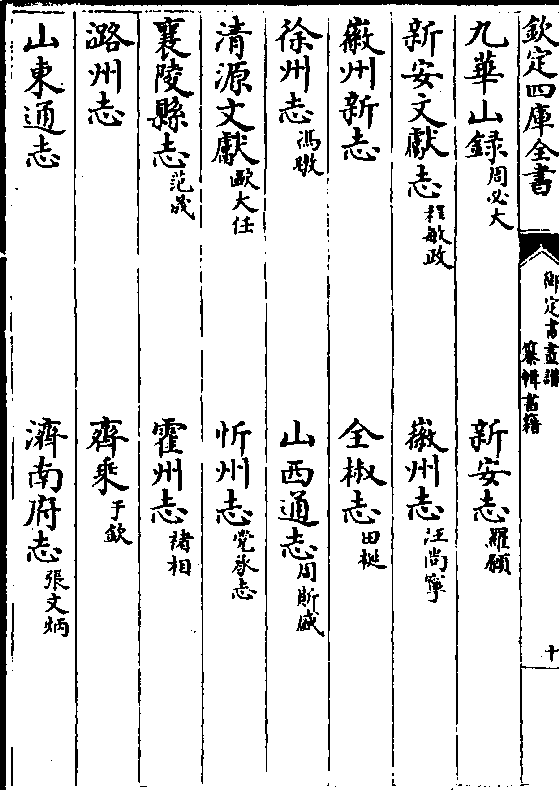 欽定四庫全書
御定書畫譜
纂輯書籍
十
九華山録周必大
新安志羅願
新安文獻志程敏政
徽州志汪尚寧
徽州新志
全椒志田梴
徐州志馮暾
山西通志周斯盛
清源文獻歐大任
忻州志党承志
襄陵縣志范晟
霍州志禇相
潞州志
齊乘于欽
山東通志
濟南府志張文炳